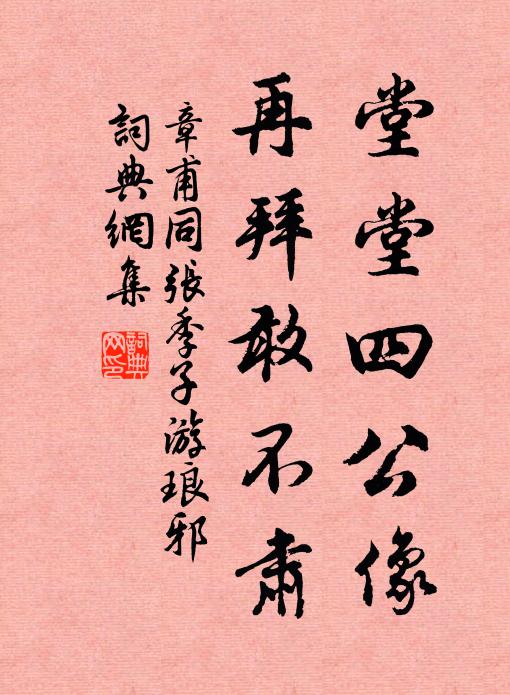 堂堂四公像
再拜敢不肅
章甫同張季子游琅邪
詞典網集
詞典網印